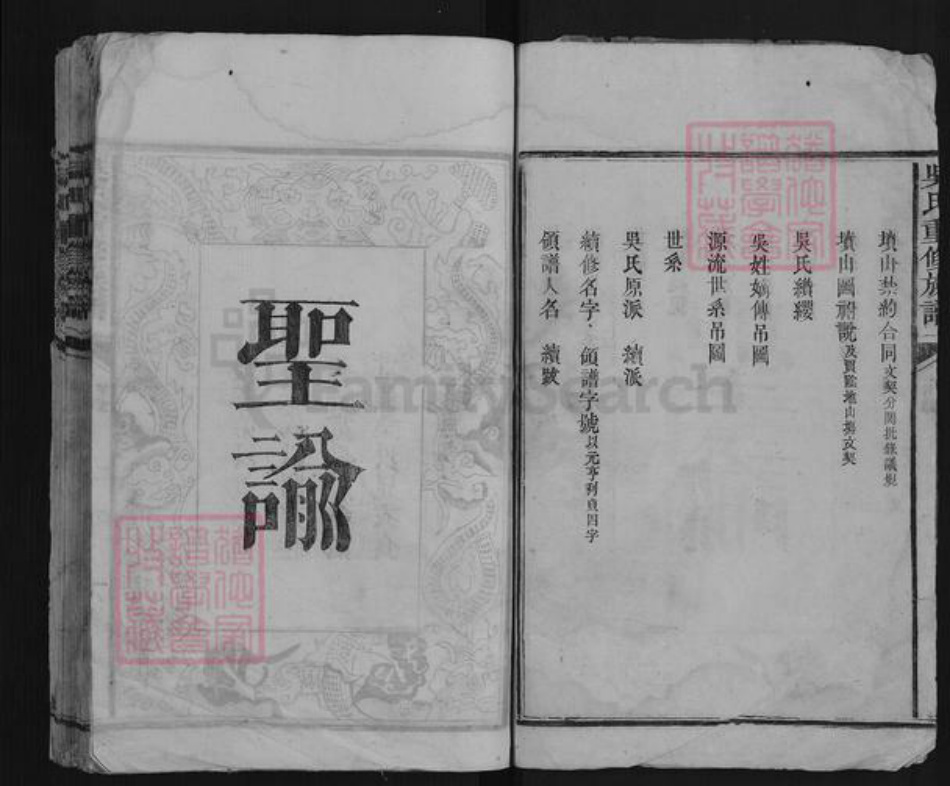 吳氏重修族譜
墳山禁約合同文契分關批發議規
墳山圖附說及買賣地山塲文契
吳氏纉纓
吳姓嫡傳吊圖
源流世系吊圖
世系
吳氏原派 續派
續修名字 領譜字號以元亨利貞四字
領譜人名 續跋
聖諭
FamilySearch